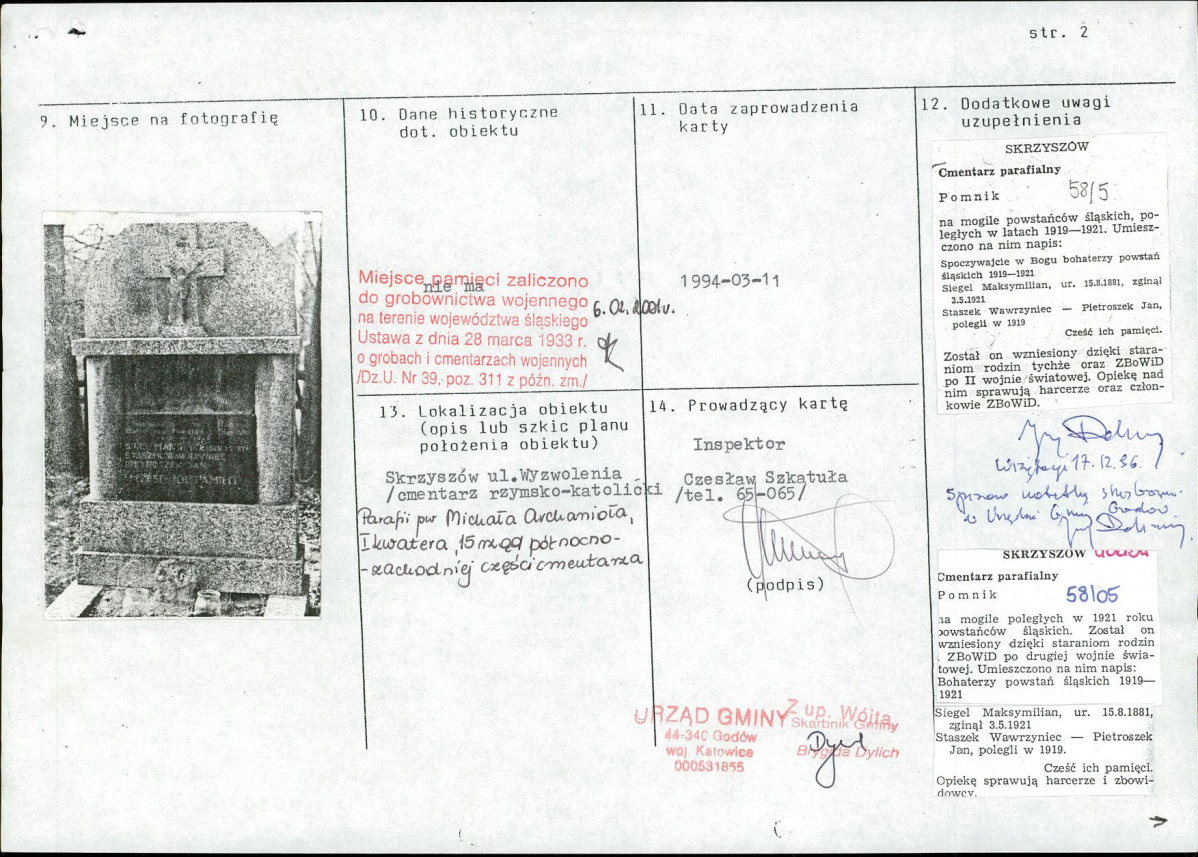 str. 2
9. Miejsce na fotografię
STASZEK WAWRZYNIEC
PIETROSZEK JAN
CZEŚĆ ICH PAMIĘCI
10. Dane historyczne
dot. obiektu
nie ma
Miejsce pamięci zaliczono
do grobownictwa wojennego
na terenie województwa śląskiego
Ustawa z dnia 28 marca 1933 r.
o grobach i cmentarzach wojennych
/Dz.U. Nr 39, poz. 311 z późn. zm./
6.02.2001r.
11. Data zaprowadzenia
karty
1994-03-11
13. Lokalizacja obiektu
(opis lub szkic planu
położenia obiektu)
Skrzyszów ul.Wyzwolenia
/cmentarz rzymsko-katolicki
Parafii pw Michała Archanioła,
I kwatera, 15 rząd północno-
-zachodniej części cmentarza
14. Prowadzący kartę
Inspektor
Czesław Szkatuła
/tel. 65-065/
(podpis)
URZĄD GMINY
44-340 Godów
woj. Katowice
000531855
Z up. Wójta
Skarbnik Gminy
Brygida Dylich
12. Dodatkowe uwagi
uzupełnienia
SKRZYSZÓW
Cmentarz parafialny
Pomnik 58/5
na mogile powstańców śląskich, po-
ległych w latach 1919—1921. Umiesz-
czono na nim napis:
Spoczywajcie w Bogu bohaterzy powstań
śląskich 1919—1921
Siegel Maksymilian, ur. 15.8.1881, zginął
3.5.1921
Staszek Wawrzyniec — Pietroszek Jan,
polegli w 1919
Cześć ich pamięci.
Został on wzniesiony dzięki stara-
niom rodzin tychże oraz ZBoWiD
po II wojnie światowej. Opiekę nad
nim sprawują harcerze oraz człon-
kowie ZBoWiD.
17.12.96
Gminy Godów.
SKRZYSZÓW
Cmentarz parafialny
Pomnik 58/05
na mogile poległych w 1921 roku
powstańców śląskich. Został on
wzniesiony dzięki staraniom rodzin
i ZBoWiD po drugiej wojnie świa-
towej. Umieszczono na nim napis:
Bohaterzy powstań śląskich 1919—
1921
Siegel Maksymilian, ur. 15.8.1881,
zginął 3.5.1921
Staszek Wawrzyniec — Pietroszek
Jan, polegli w 1919.
Cześć ich pamięci.
Opiekę sprawują harcerze i zbowi-
dowcy.